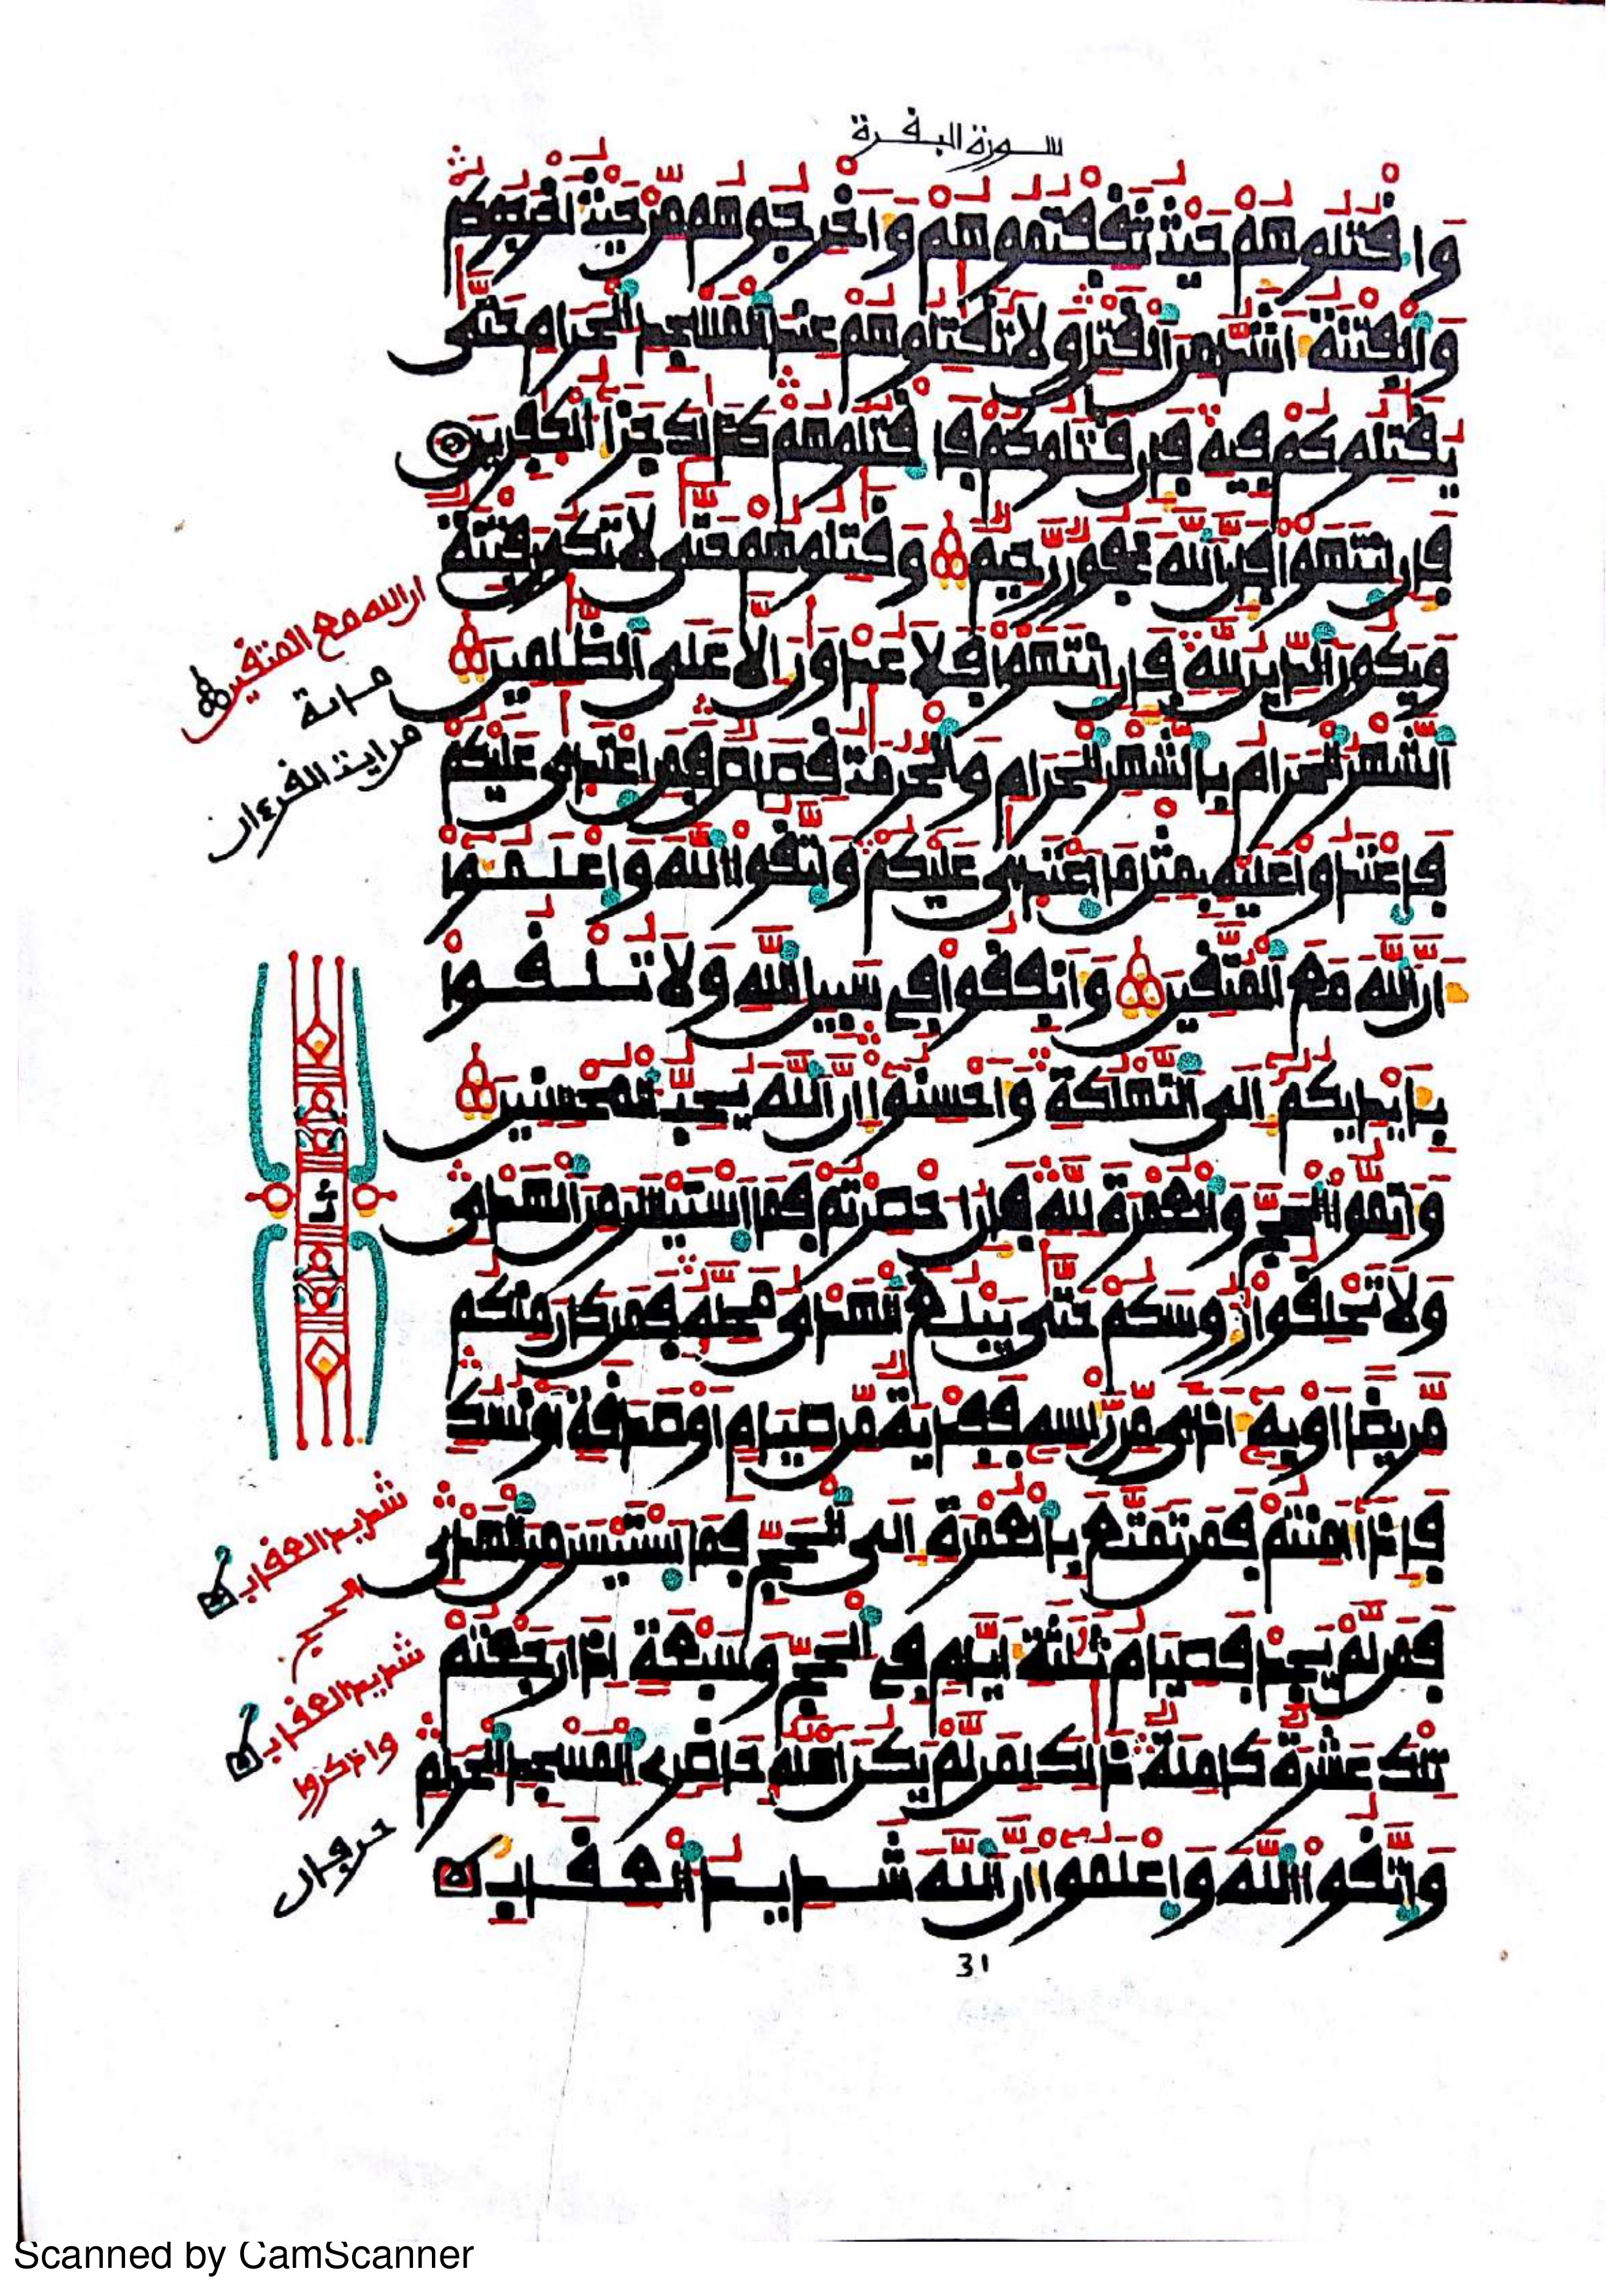 سورة البقرة
وَاقْتُلُوهُمْ حَيْثُ ثَقِفْتُمُوهُمْ وَأَخْرِجُوهُم مِّنْ حَيْثُ أَخْرَجُوكُمْ
وَالْفِتْنَةُ أَشَدُّ مِنَ الْقَتْلِ وَلَا تُقَٰتِلُوهُمْ عِندَ الْمَسْجِدِ الْحَرَامِ حَتَّىٰ
يُقَٰتِلُوكُمْ فِيهِ فَإِن قَٰتَلُوكُمْ فَاقْتُلُوهُمْ كَذَٰلِكَ جَزَاءُ الْكَٰفِرِينَ
فَإِنِ انتَهَوْا فَإِنَّ اللَّهَ غَفُورٌ رَّحِيمٌ وَقَٰتِلُوهُمْ حَتَّىٰ لَا تَكُونَ فِتْنَةٌ
وَيَكُونَ الدِّينُ لِلَّهِ فَإِنِ انتَهَوْا فَلَا عُدْوَٰنَ إِلَّا عَلَى الظَّٰلِمِينَ
الشَّهْرُ الْحَرَامُ بِالشَّهْرِ الْحَرَامِ وَالْحُرُمَٰتُ قِصَاصٌ فَمَنِ اعْتَدَىٰ عَلَيْكُمْ
فَاعْتَدُوا عَلَيْهِ بِمِثْلِ مَا اعْتَدَىٰ عَلَيْكُمْ وَاتَّقُوا اللَّهَ وَاعْلَمُوا
أَنَّ اللَّهَ مَعَ الْمُتَّقِينَ وَأَنفِقُوا فِي سَبِيلِ اللَّهِ وَلَا تُلْقُوا
بِأَيْدِيكُمْ إِلَى التَّهْلُكَةِ وَأَحْسِنُوا إِنَّ اللَّهَ يُحِبُّ الْمُحْسِنِينَ
وَأَتِمُّوا الْحَجَّ وَالْعُمْرَةَ لِلَّهِ فَإِنْ أُحْصِرْتُمْ فَمَا اسْتَيْسَرَ مِنَ الْهَدْيِ
وَلَا تَحْلِقُوا رُءُوسَكُمْ حَتَّىٰ يَبْلُغَ الْهَدْيُ مَحِلَّهُ فَمَن كَانَ مِنكُم
مَّرِيضًا أَوْ بِهِ أَذًى مِّن رَّأْسِهِ فَفِدْيَةٌ مِّن صِيَامٍ أَوْ صَدَقَةٍ أَوْ نُسُكٍ
فَإِذَا أَمِنتُمْ فَمَن تَمَتَّعَ بِالْعُمْرَةِ إِلَى الْحَجِّ فَمَا اسْتَيْسَرَ مِنَ الْهَدْيِ
فَمَن لَّمْ يَجِدْ فَصِيَامُ ثَلَٰثَةِ أَيَّامٍ فِي الْحَجِّ وَسَبْعَةٍ إِذَا رَجَعْتُمْ
تِلْكَ عَشَرَةٌ كَامِلَةٌ ذَٰلِكَ لِمَن لَّمْ يَكُنْ أَهْلُهُ حَاضِرِي الْمَسْجِدِ الْحَرَامِ
وَاتَّقُوا اللَّهَ وَاعْلَمُوا أَنَّ اللَّهَ شَدِيدُ الْعِقَابِ
ان الله مع المتقين
من ايت القرءان
شديد العقاب
شديد العقاب
واذكروا
31
Scanned by CamScanner